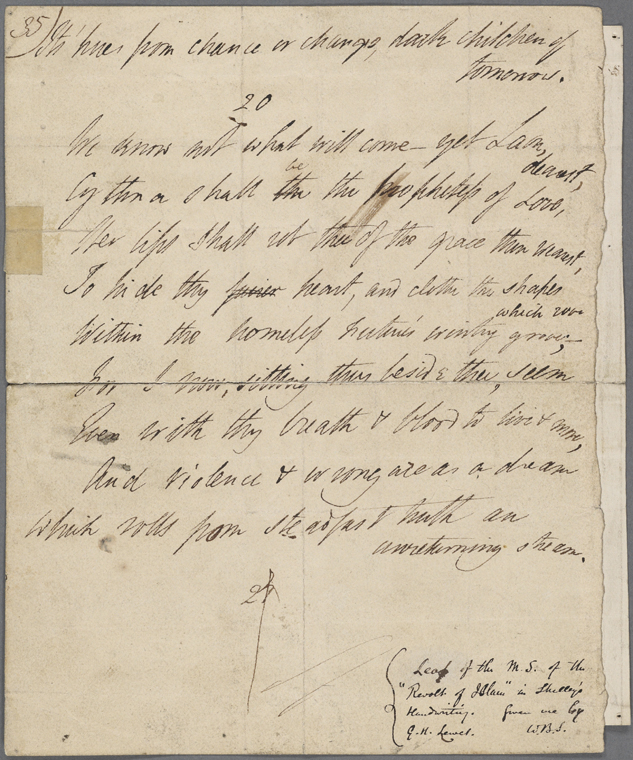 35
It' hues from chance or change, dark children of
tomorrow.
20
We know not what will come – yet Laon,
dearest,
Cythna shall be the prophetess of Love,
Her lips shall rob thee of the grace thou wearest,
To hide thy heart, and clothe the shapes
which rove
Within the homeless Future's wintry grove;–
For I now, sitting thus beside thee, seem
Even with thy breath & blood to live & move,
And violence & wrong are as a dream
Which rolls from steadfast truth an
unreturning stream.
Leaf of the M.S. of the
"Revolt of Islam" in Shelley's
Handwriting. Given me by
G.H. Lewes. W.B.S.